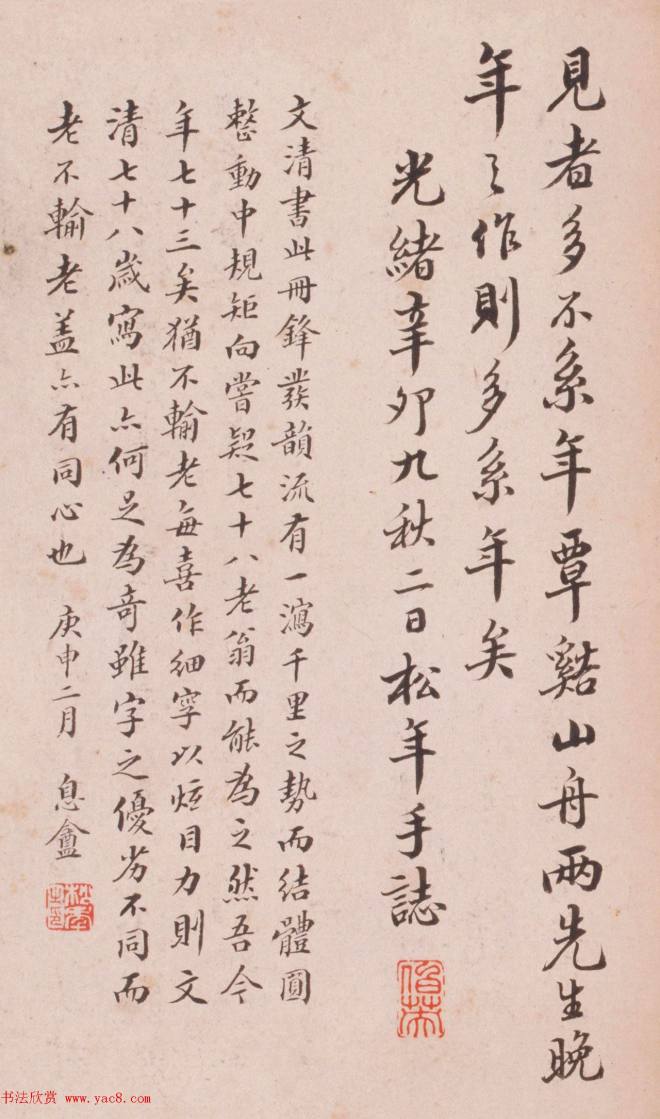 見者多不系年覃谿山舟兩先生晚
年之作則多系年矣
光緒辛卯九秋二日松年手誌
文清書此冊鋒發韻流有一瀉千里之勢而結體圓
整動中規矩向嘗疑七十八老翁而能為之然吾今
年七十三矣猶不輸老每喜作細字以炫目力則文
清七十八歲寫此亦何足為奇雖字之優劣不同而
老不輸老蓋亦有同心也 庚申二月 息盦
书法欣赏 www.yac8.com